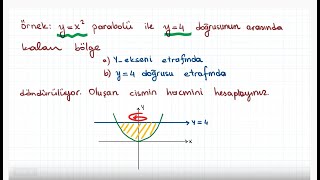 örnek: y=x² parabolü ile y=4 doğrusunun arasında
kalan bölge
a) Y-ekseni etrafında
b) y=4 doğrusu etrafında
döndürülüyor. Oluşan cismin hacmini hesaplayınız.
y
y=4
x